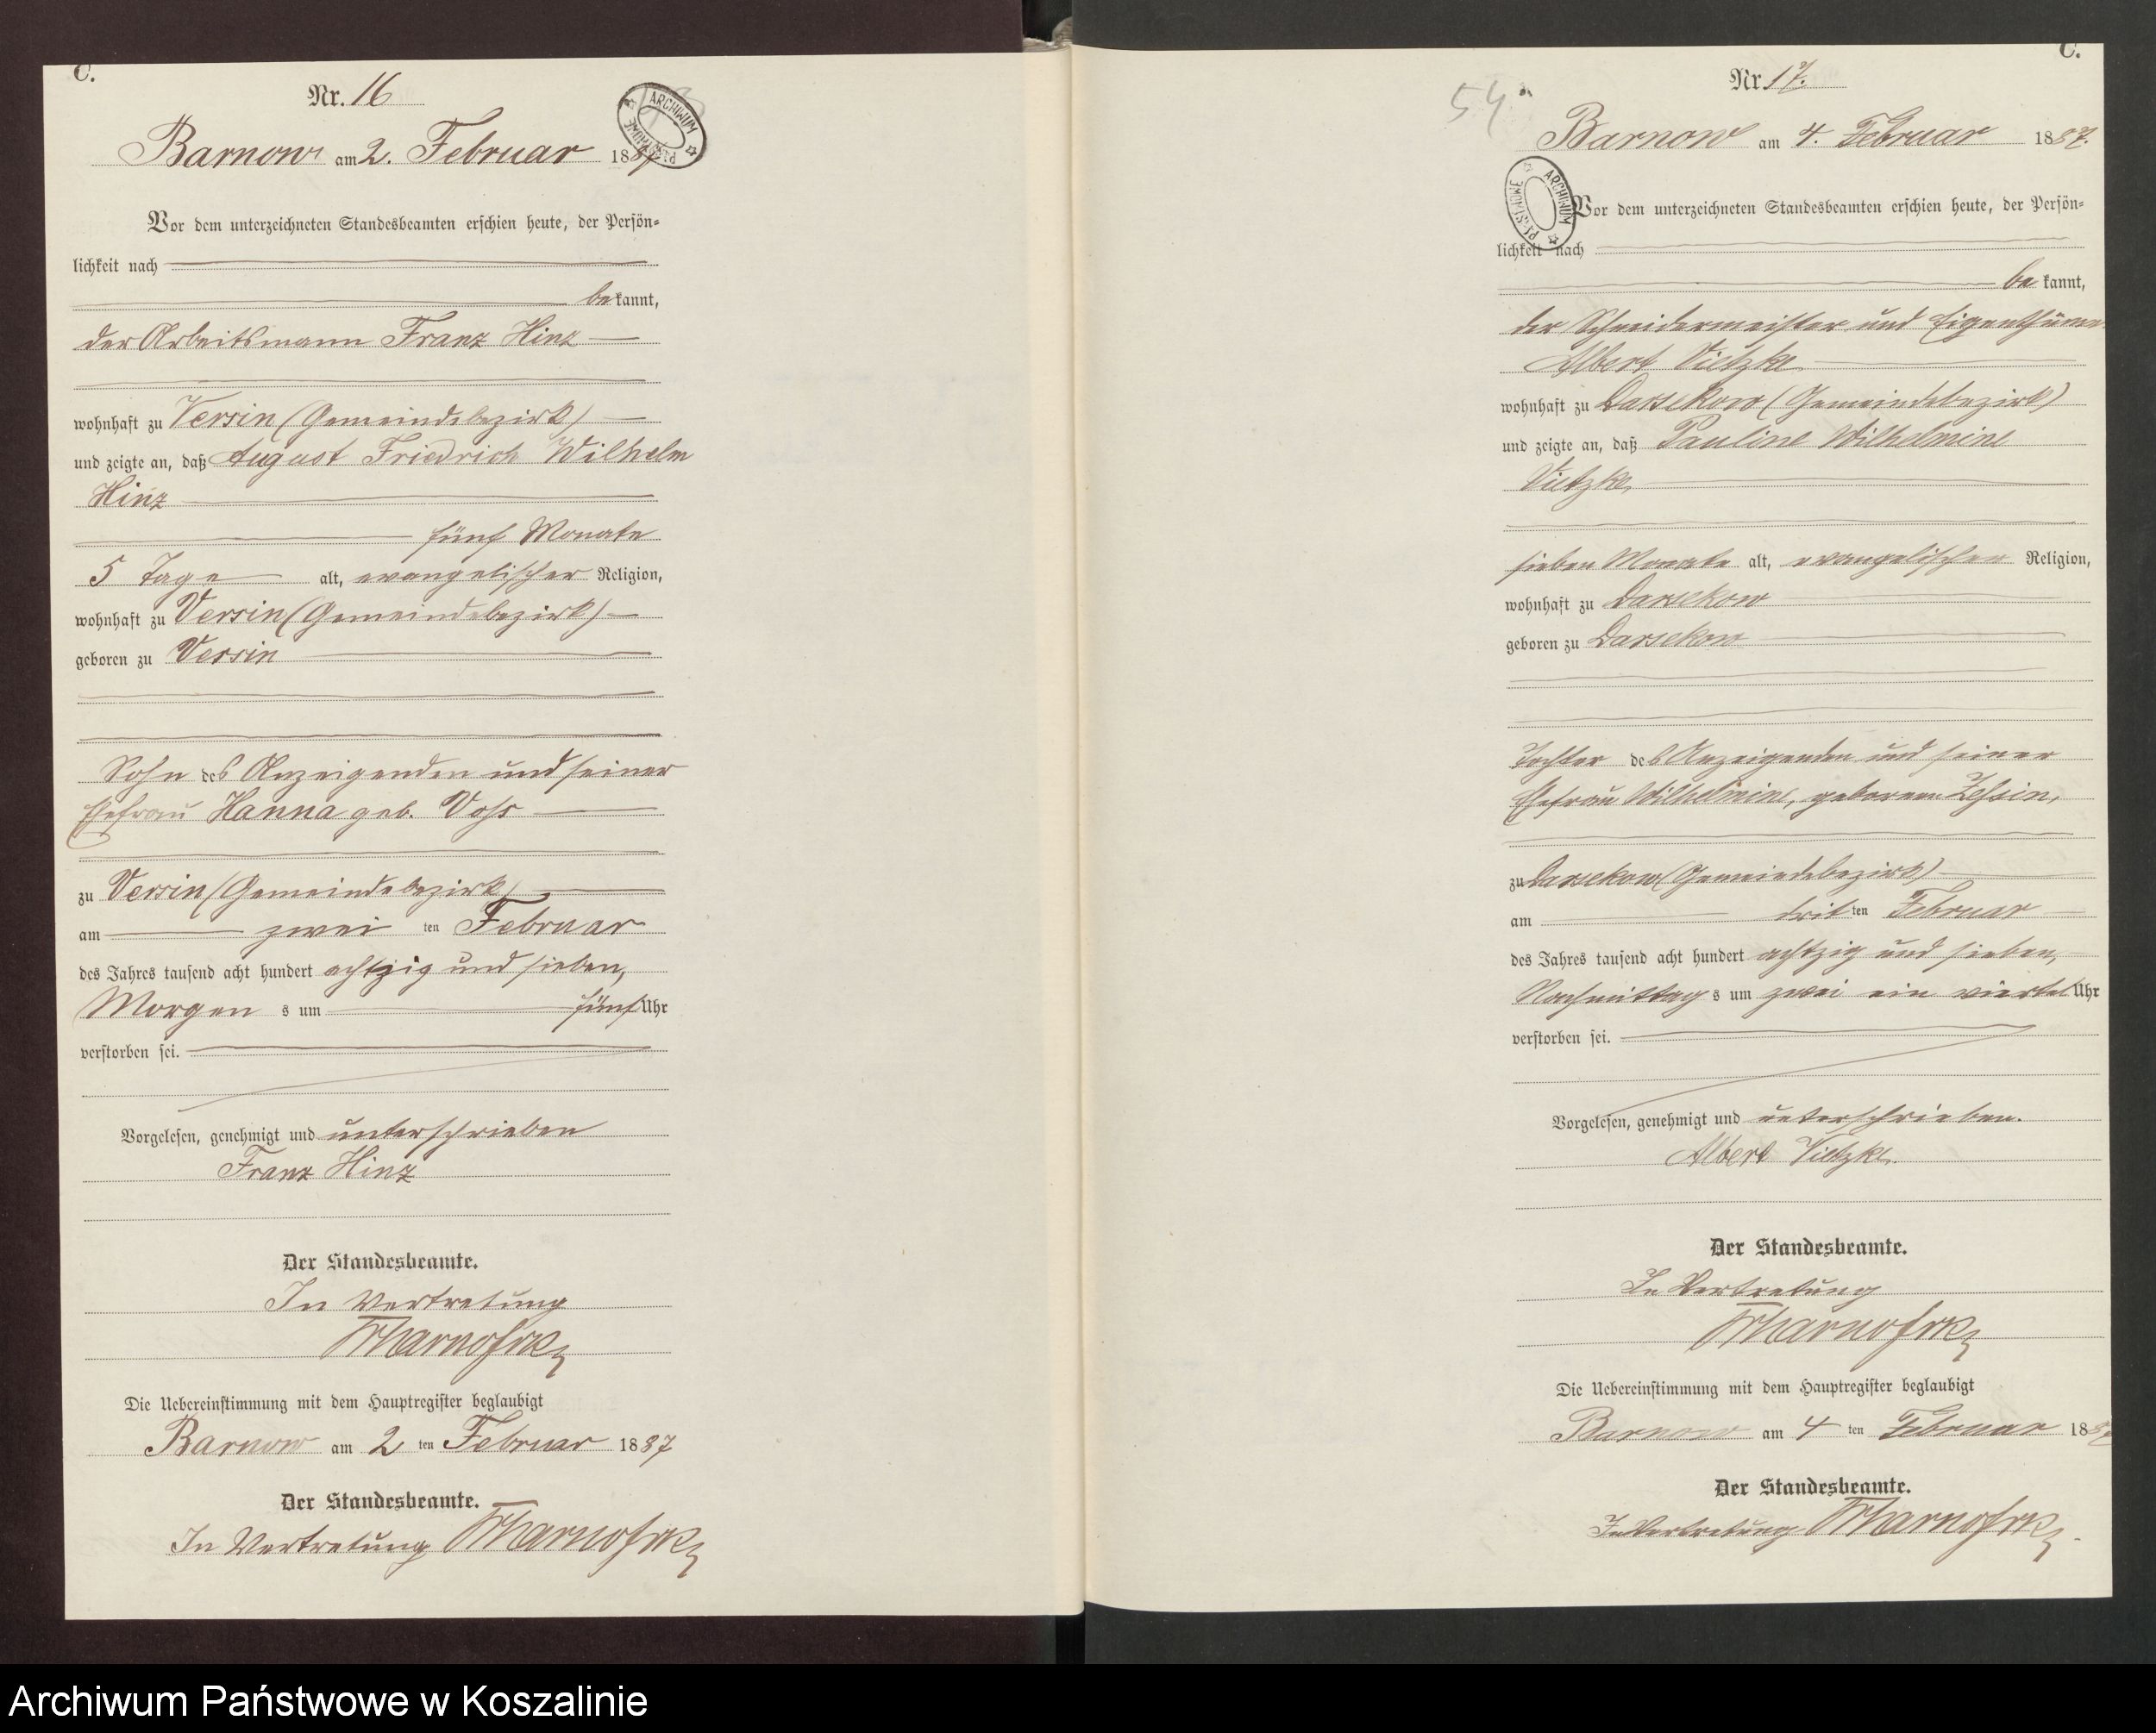 C.
Nr. 16
Barnow am 2. Februar 1887
ARCHIWUM PAŃSTWOWE
Vor dem unterzeichneten Standesbeamten erschien heute, der Persön-
lichkeit nach
bekannt,
der Arbeitsmann Franz Hinz
wohnhaft zu Versin (Gemeindebezirk)
und zeigte an, daß August Friedrich Wilhelm
Hinz
fünf Monate
5 Tage alt, evangelischer Religion,
wohnhaft zu Versin (Gemeindebezirk)
geboren zu Versin
Sohn des Anzeigenden und seiner
Ehefrau Hanna geb. Voss
zu Versin (Gemeindebezirk)
am zwei ten Februar
des Jahres tausend acht hundert achtzig und sieben,
Morgen s um fünf Uhr
verstorben sei.
Vorgelesen, genehmigt und unterschrieben
Franz Hinz
Der Standesbeamte.
In Vertretung
Die Uebereinstimmung mit dem Hauptregister beglaubigt
Barnow am 2 ten Februar 1887
Der Standesbeamte.
In Vertretung
C.
54
Nr. 17.
Barnow am 4. Februar 1887.
ARCHIWUM PAŃSTWOWE
Vor dem unterzeichneten Standesbeamten erschien heute, der Persön-
lichkeit nach
bekannt,
der Schneidermeister und Eigenthümer
Albert Vietzke
wohnhaft zu Darsekow (Gemeindebezirk)
und zeigte an, daß Pauline Wilhelmine
Vietzke,
sieben Monate alt, evangelischer Religion,
wohnhaft zu Darsekow
geboren zu Darsekow
Tochter des Anzeigenden und seiner
Ehefrau Wilhelmine, geborenen
zu Darsekow (Gemeindebezirk)
am drit ten Februar
des Jahres tausend acht hundert achtzig und sieben,
Nachmittag s um zwei ein viertel Uhr
verstorben sei.
Vorgelesen, genehmigt und unterschrieben.
Albert Vietzke.
Der Standesbeamte.
In Vertretung
Die Uebereinstimmung mit dem Hauptregister beglaubigt
Barnow am 4 ten Februar 1887
Der Standesbeamte.
In Vertretung
Archiwum Państwowe w Koszalinie